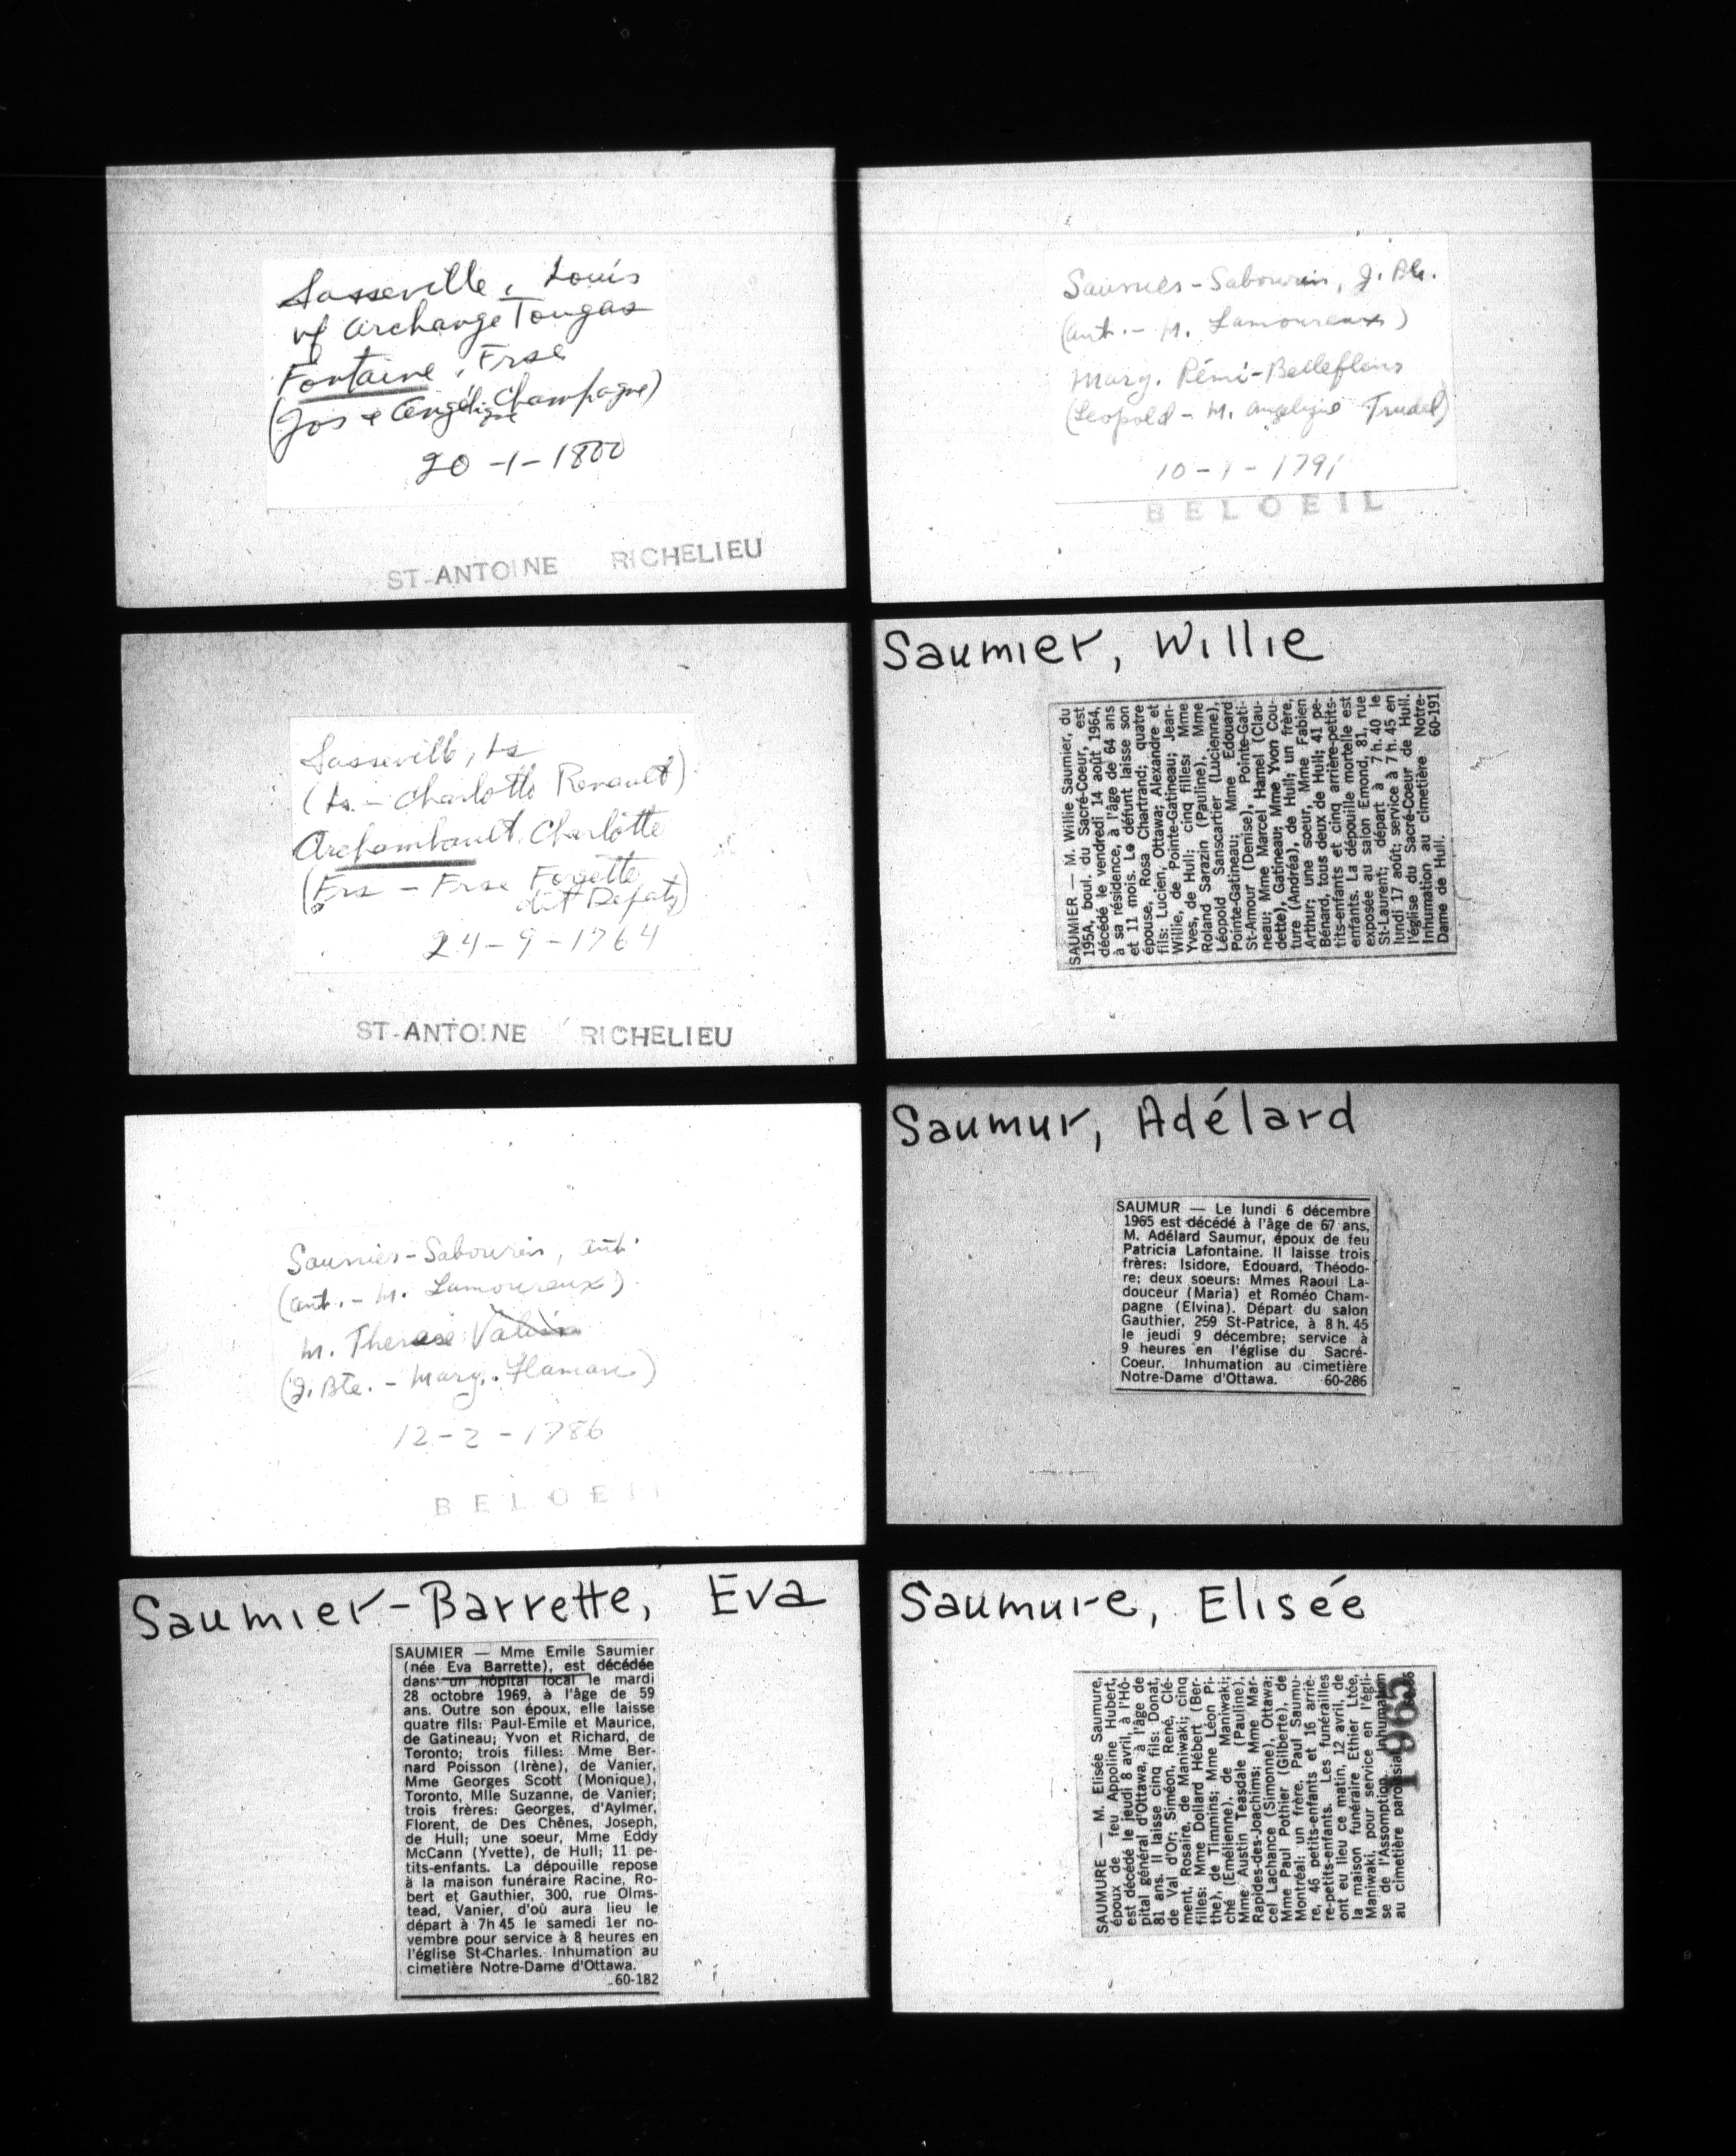 Sasseville, Louis
vf Archange Tougas
Fontaine, Frse
(Jos & Angélique Champagne)
20-1-1800
ST-ANTOINE RICHELIEU
Sasseville, Ls
(Ls. - Charlotte Renault)
Archambault, Charlotte
(Frs - Frse Foyette
dit Depaty)
24-9-1764
ST-ANTOINE RICHELIEU
Saumier-Sabourin, Ant.
(Ant. - M. Lamoureux)
M. Therese
(J. Bte. - Marg. Flamare)
12-2-1786
BELOEIL
Saumier-Barrette, Eva
SAUMIER — Mme Emile Saumier
(née Eva Barrette), est décédée
dans un hôpital local le mardi
28 octobre 1969, à l'âge de 59
ans. Outre son époux, elle laisse
quatre fils: Paul-Emile et Maurice,
de Gatineau; Yvon et Richard, de
Toronto; trois filles: Mme Ber-
nard Poisson (Irène), de Vanier,
Mme Georges Scott (Monique),
Toronto, Mlle Suzanne, de Vanier;
trois frères: Georges, d'Aylmer,
Florent, de Des Chênes, Joseph,
de Hull; une soeur, Mme Eddy
McCann (Yvette), de Hull; 11 pe-
tits-enfants. La dépouille repose
à la maison funéraire Racine, Ro-
bert et Gauthier, 300, rue Olms-
tead, Vanier, d'où aura lieu le
départ à 7h 45 le samedi 1er no-
vembre pour service à 8 heures en
l'église St-Charles. Inhumation au
cimetière Notre-Dame d'Ottawa.
60-182
Saumier-Sabourin, J. Bte.
(Ant. - M. Lamoureux)
Marg. Rémi-Bellefleur
(Leopold - M. Angelique Trudel)
1791
BELOEIL
Saumier, Willie
SAUMIER — M. Willie Saumier, du
195A, boul. du Sacré-Coeur, est
décédé le vendredi 14 août 1964,
à sa résidence, à l'âge de 64 ans
et 11 mois. Le défunt laisse son
épouse, Rosa Chartrand; quatre
fils: Lucien, Ottawa; Alexandre et
Willie, de Pointe-Gatineau; Jean-
Yves, de Hull; cinq filles: Mme
Roland Sarazin (Pauline), Mme
Léopold Sanscartier (Lucienne),
Pointe-Gatineau; Mme Edouard
St-Amour (Denise), Pointe-Gati-
neau; Mme Marcel Hamel (Clau-
dette), Gatineau; Mme Yvon Cou-
ture (Andréa), de Hull; un frère,
Arthur; une soeur, Mme Fabien
Bénard, tous deux de Hull; 41 pe-
tits-enfants et cinq arrière-petits-
enfants. La dépouille mortelle est
exposée au salon Emond, 81, rue
St-Laurent; départ à 7 h. 40 le
lundi 17 août; service à 7 h. 45 en
l'église du Sacré-Coeur de Hull.
Inhumation au cimetière Notre-
Dame de Hull. 60-191
Saumur, Adélard
SAUMUR — Le lundi 6 décembre
1965 est décédé à l'âge de 67 ans,
M. Adélard Saumur, époux de feu
Patricia Lafontaine. Il laisse trois
frères: Isidore, Edouard, Théodo-
re; deux soeurs: Mmes Raoul La-
douceur (Maria) et Roméo Cham-
pagne (Elvina). Départ du salon
Gauthier, 259 St-Patrice, à 8 h. 45
le jeudi 9 décembre; service à
9 heures en l'église du Sacré-
Coeur. Inhumation au cimetière
Notre-Dame d'Ottawa. 60-286
Saumure, Elisée
SAUMURE — M. Elisée Saumure,
époux de feu Appoline Hubert,
est décédé le jeudi 8 avril, à l'Hô-
pital général d'Ottawa, à l'âge de
81 ans. Il laisse cinq fils: Donat,
de Val d'Or; Siméon, René, Clé-
ment, Rosaire, de Maniwaki; cinq
filles: Mme Dollard Hébert (Ber-
the), de Timmins; Mme Léon Pi-
ché (Emélienne), de Maniwaki;
Mme Austin Teasdale (Pauline),
Rapides-des-Joachims; Mme Mar-
cel Lachance (Simonne), Ottawa;
Mme Paul Pothier (Gilberte), de
Montréal; un frère, Paul Saumu-
re, 46 petits-enfants et 16 arriè-
re-petits-enfants. Les funérailles
ont eu lieu ce matin, 12 avril, de
la maison funéraire Ethier Ltée,
Maniwaki, pour service en l'égli-
se de l'Assomption. Inhumation
au cimetière paroissial
1965